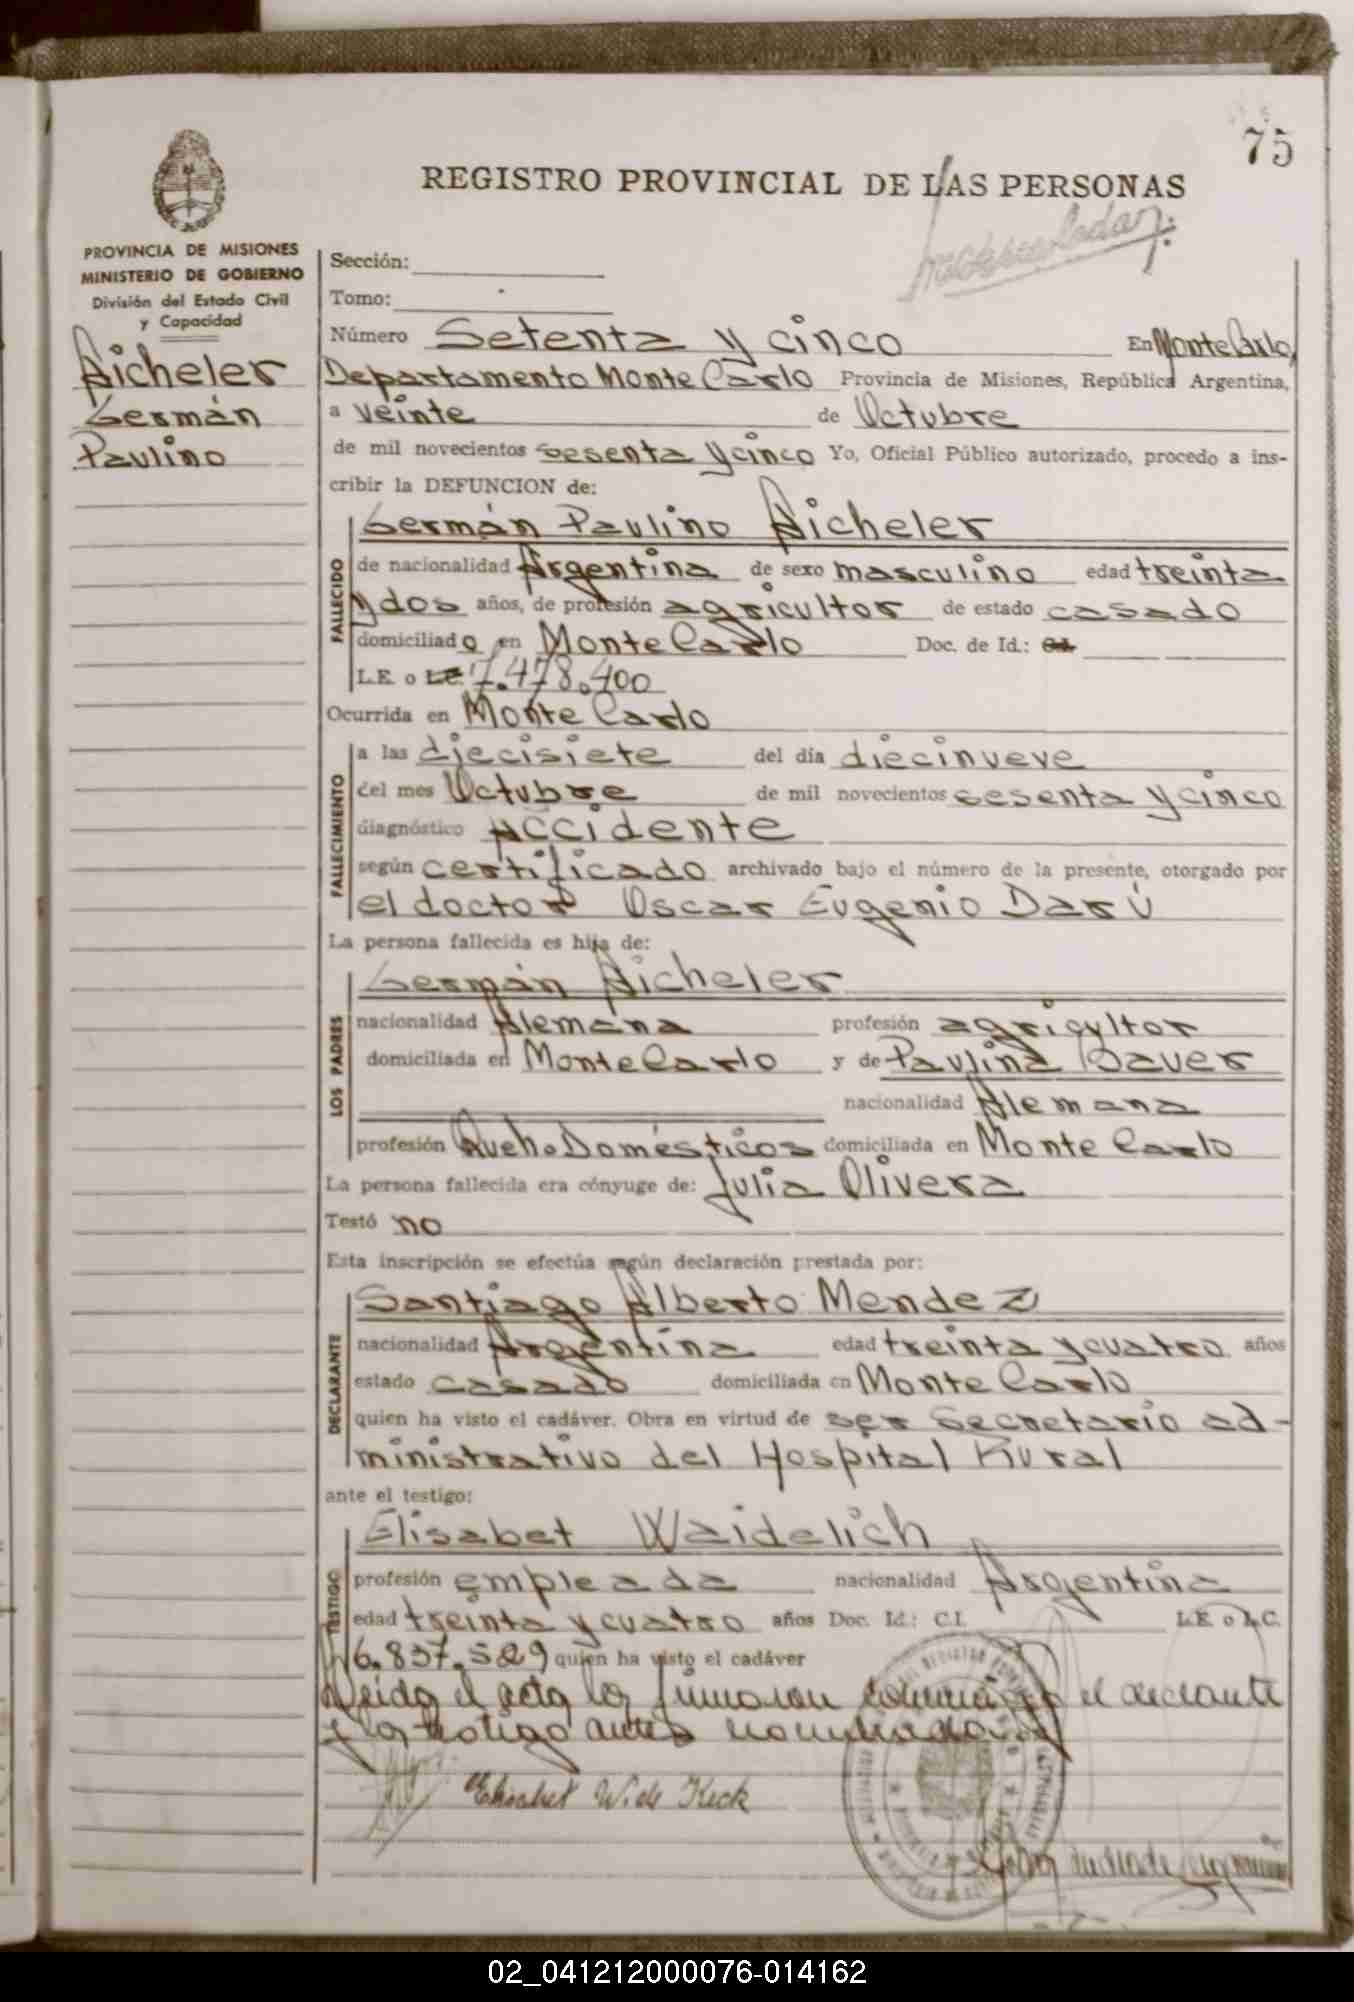 75
REGISTRO PROVINCIAL DE LAS PERSONAS
PROVINCIA DE MISIONES
MINISTERIO DE GOBIERNO
División del Estado Civil
y Capacidad
Aicheler
Germán
Paulino
Sección:
Tomo:
Número Setenta y cinco En Monte Carlo,
Departamento Monte Carlo Provincia de Misiones, República Argentina,
a veinte de Octubre
de mil novecientos sesenta y cinco Yo, Oficial Público autorizado, procedo a ins-
cribir la DEFUNCION de:
FALLECIDO
Germán Paulino Aicheler
de nacionalidad Argentina de sexo masculino edad treinta
y dos años, de profesión agricultor de estado casado
domiciliado en Monte Carlo Doc. de Id.:
L.E. o 7.478.400
Ocurrida en Monte Carlo
FALLECIMIENTO
a las diecisiete del día diecinueve
del mes Octubre de mil novecientos sesenta y cinco
diagnóstico Accidente
según certificado archivado bajo el número de la presente, otorgado por
el doctor Oscar Eugenio Darú
La persona fallecida es hija de:
LOS PADRES
Germán Aicheler
nacionalidad Alemana profesión agricultor
domiciliada en Monte Carlo y de Paulina Bauer
nacionalidad Alemana
profesión Queh. Domésticos domiciliada en Monte Carlo
La persona fallecida era cónyuge de: Julia Olivera
Testó no
Esta inscripción se efectúa según declaración prestada por:
DECLARANTE
Santiago Alberto Mendez
nacionalidad Argentina edad treinta y cuatro años
estado casado domiciliada en Monte Carlo
quien ha visto el cadáver. Obra en virtud de ser Secretario ad-
ministrativo del Hospital Rural
ante el testigo:
TESTIGO
Elisabet Waidelich
profesión empleada nacionalidad Argentina
edad treinta y cuatro años Doc. Id.: C.I. L.E. o L.C.
6.837.529 quien ha visto el cadáver
Leida el acta la firmaron conmigo el declarante
y la testigo antes nombrados
Elisabet W. de Keck
02_041212000076-014162